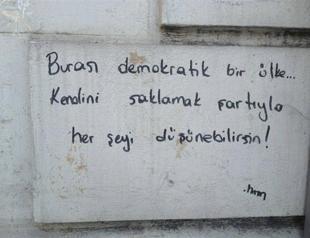 Burası demokratik bir ülke...
Kendini saklamak şartıyla
her şeyi düşünebilirsin!